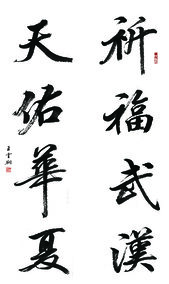 祈福武漢
天佑華夏